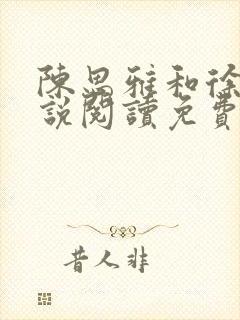 陳思雅和徐
說閱讀免費
昔人非